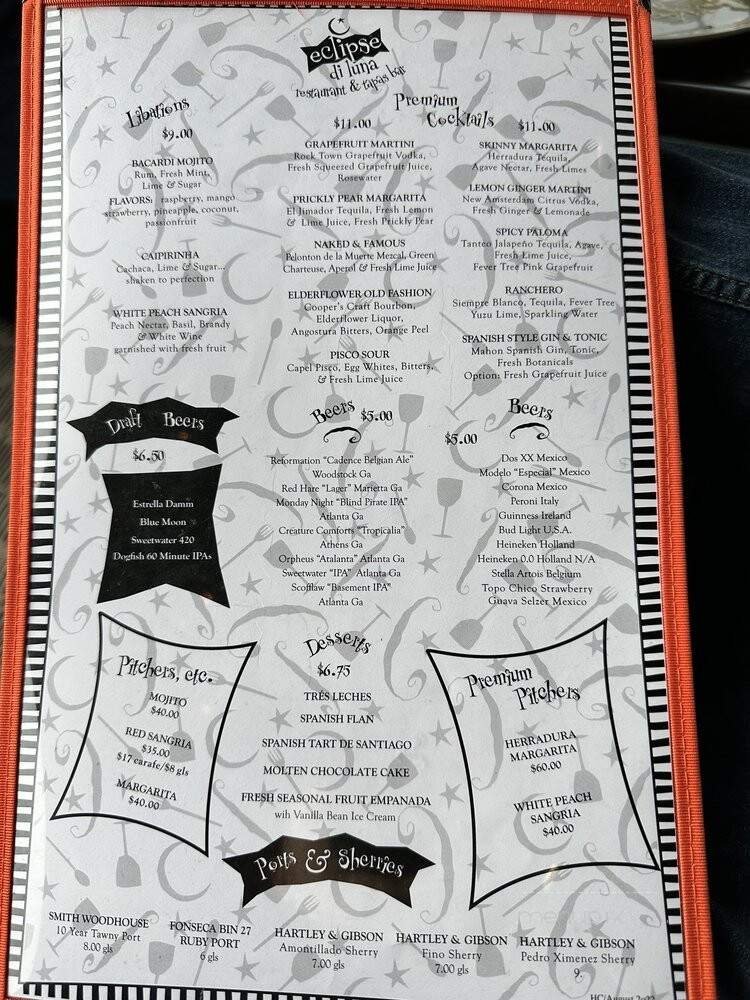 eclipse
di luna
restaurant & tapas bar
Libations
$9.00
BACARDI MOJITO
Rum, Fresh Mint,
Lime & Sugar
FLAVORS: raspberry, mango
strawberry, pineapple, coconut,
passionfruit
CAIPIRINHA
Cachaca, Lime & Sugar...
shaken to perfection
WHITE PEACH SANGRIA
Peach Nectar, Basil, Brandy
& White Wine
garnished with fresh fruit
Premium
Cocktails
$11.00
GRAPEFRUIT MARTINI
Rock Town Grapefruit Vodka,
Fresh Squeezed Grapefruit Juice,
Rosewater
PRICKLY PEAR MARGARITA
El Jimador Tequila, Fresh Lemon
& Lime Juice, Fresh Prickly Pear
NAKED & FAMOUS
Pelonton de la Muerte Mezcal, Green
Charteuse, Aperol & Fresh Lime Juice
ELDERFLOWER OLD FASHION
Cooper's Craft Bourbon,
Elderflower Liquor,
Angostura Bitters, Orange Peel
PISCO SOUR
Capel Pisco, Egg Whites, Bitters,
& Fresh Lime Juice
$11.00
SKINNY MARGARITA
Herradura Tequila,
Agave Nectar, Fresh Limes
LEMON GINGER MARTINI
New Amsterdam Citrus Vodka,
Fresh Ginger & Lemonade
SPICY PALOMA
Tanteo Jalapeño Tequila, Agave,
Fresh Lime Juice,
Fever Tree Pink Grapefruit
RANCHERO
Siempre Blanco, Tequila, Fever Tree
Yuzu Lime, Sparkling Water
SPANISH STYLE GIN & TONIC
Mahon Spanish Gin, Tonic,
Fresh Botanicals
Option: Fresh Grapefruit Juice
Draft Beers
$6.50
Estrella Damm
Blue Moon
Sweetwater 420
Dogfish 60 Minute IPAs
Beers $5.00
Reformation "Cadence Belgian Ale"
Woodstock Ga
Red Hare "Lager" Marietta Ga
Monday Night "Blind Pirate IPA"
Atlanta Ga
Creature Comforts "Tropicalia"
Athens Ga
Orpheus "Atalanta" Atlanta Ga
Sweetwater "IPA" Atlanta Ga
Scofflaw "Basement IPA"
Atlanta Ga
Beers
$5.00
Dos XX Mexico
Modelo "Especial" Mexico
Corona Mexico
Peroni Italy
Guinness Ireland
Bud Light U.S.A.
Heineken Holland
Heineken 0.0 Holland N/A
Stella Artois Belgium
Topo Chico Strawberry
Guava Selzer Mexico
Pitchers, etc.
MOJITO
$40.00
RED SANGRIA
$35.00
$17 carafe/$8 gls
MARGARITA
$40.00
Desserts
$6.75
TRÉS LECHES
SPANISH FLAN
SPANISH TART DE SANTIAGO
MOLTEN CHOCOLATE CAKE
FRESH SEASONAL FRUIT EMPANADA
wih Vanilla Bean Ice Cream
Premium
Pitchers
HERRADURA
MARGARITA
$60.00
WHITE PEACH
SANGRIA
$40.00
Ports & Sherries
SMITH WOODHOUSE
10 Year Tawny Port
8.00 gls
FONSECA BIN 27
RUBY PORT
6 gls
HARTLEY & GIBSON
Amontillado Sherry
7.00 gls
HARTLEY & GIBSON
Fino Sherry
7.00 gls
HARTLEY & GIBSON
Pedro Ximenez Sherry
9.
HC/August